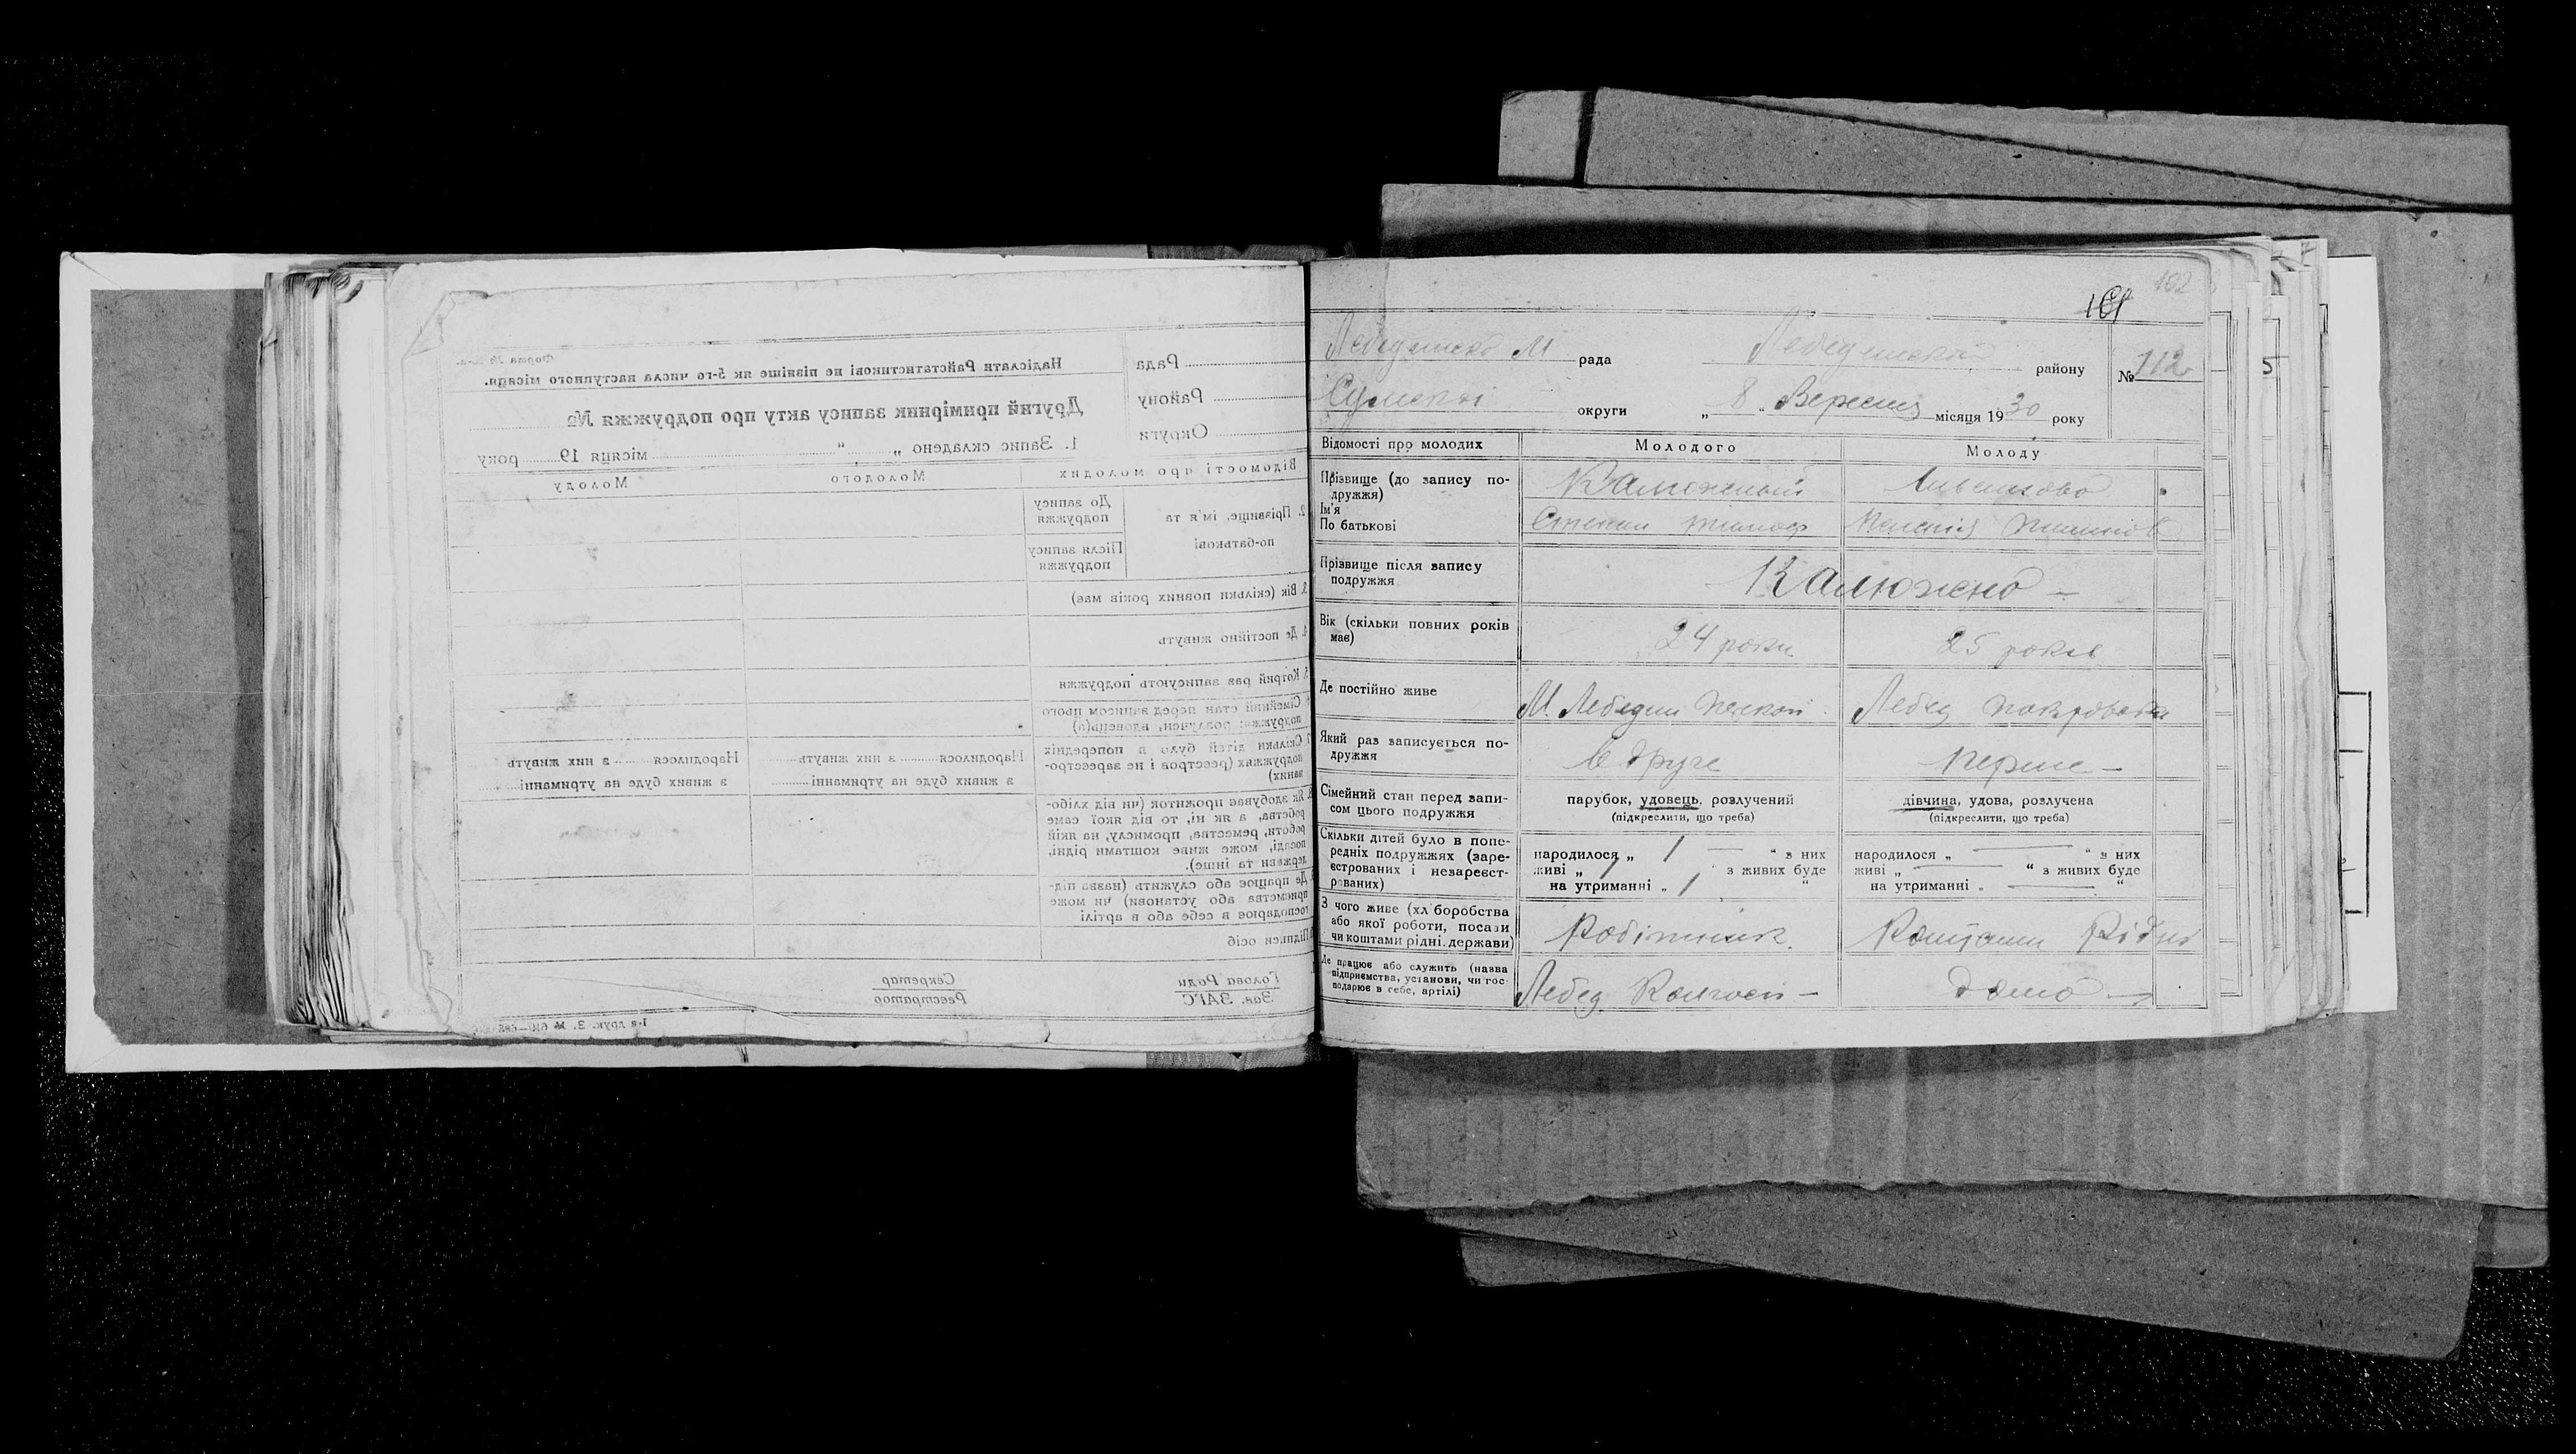 Форма №
Надіслати Райстатистикові не пізніше як 5-го числа наступного місяця.
Рада
Району
Округи
Другий примірник запису акту про подружжя №
1. Запис складено „ “ місяця 19 року
Відомості про молодих Молодого Молоду
2. Прізвище, ім'я та по-батькові
До запису подружжя
Після запису подружжя
3. Вік (скільки повних років має)
4. Де постійно живуть
5. Котрий раз записують подружжя
Сімейний стан перед записом цього
подружжя: розлучен, вдовець(а)
Скільки дітей було в попередніх
подружжях (реєстров і не зареєстро-
ваних)
Народилося з них живуть
з живих буде на утриманні
Народилося з них живуть
з живих буде на утриманні
Як здобуває прожиток (чи від хлібо-
робства, а як ні, то від якої саме
роботи, ремества, промислу, на якій
посаді, може живе коштами рідні,
держави та інше).
Де працює або служить (назва під-
приємства або установи) чи може
господарює в себе або в артілі
Підписи осіб
Голова Ради
Зав. ЗАГС
Секретар
Реєстратор
102
101
Лебединська М рада Лебединського району
№ 112
Сумської округи „ 8 “ Вересня місяця 1930 року
Відомості про молодих Молодого Молоду
Прізвище (до запису по-
дружжя)
Ім'я
По батькові
Степан Тимоф
Прізвище після запису
подружжя
Калюжно
Вік (скільки повних років
має)
24 роки 25 років
Де постійно живе
М. Лебедин Лебед Покровська
Який раз записується по-
дружжя
в друге перше
Сімейний стан перед запи-
сом цього подружжя
парубок, удовець, розлучений
(підкреслити, що треба)
дівчина, удова, розлучена
(підкреслити, що треба)
Скільки дітей було в попе-
редніх подружжях (заре-
єстрованих і незареєст-
рованих)
народилося „ 1 — “ з них
живі „ 1 “ з живих буде
на утриманні „ 1 “
народилося „ — “ з них
живі „ — “ з живих буде
на утриманні „ — “
З чого живе (хліборобства
або якої роботи, посади
чи коштами рідні, держави)
Робітник Коштами Рідні
Де працює або служить (назва
підприємства, установи, чи гос-
подарює в себе, артілі)
Лебед. Колгосп — дома —